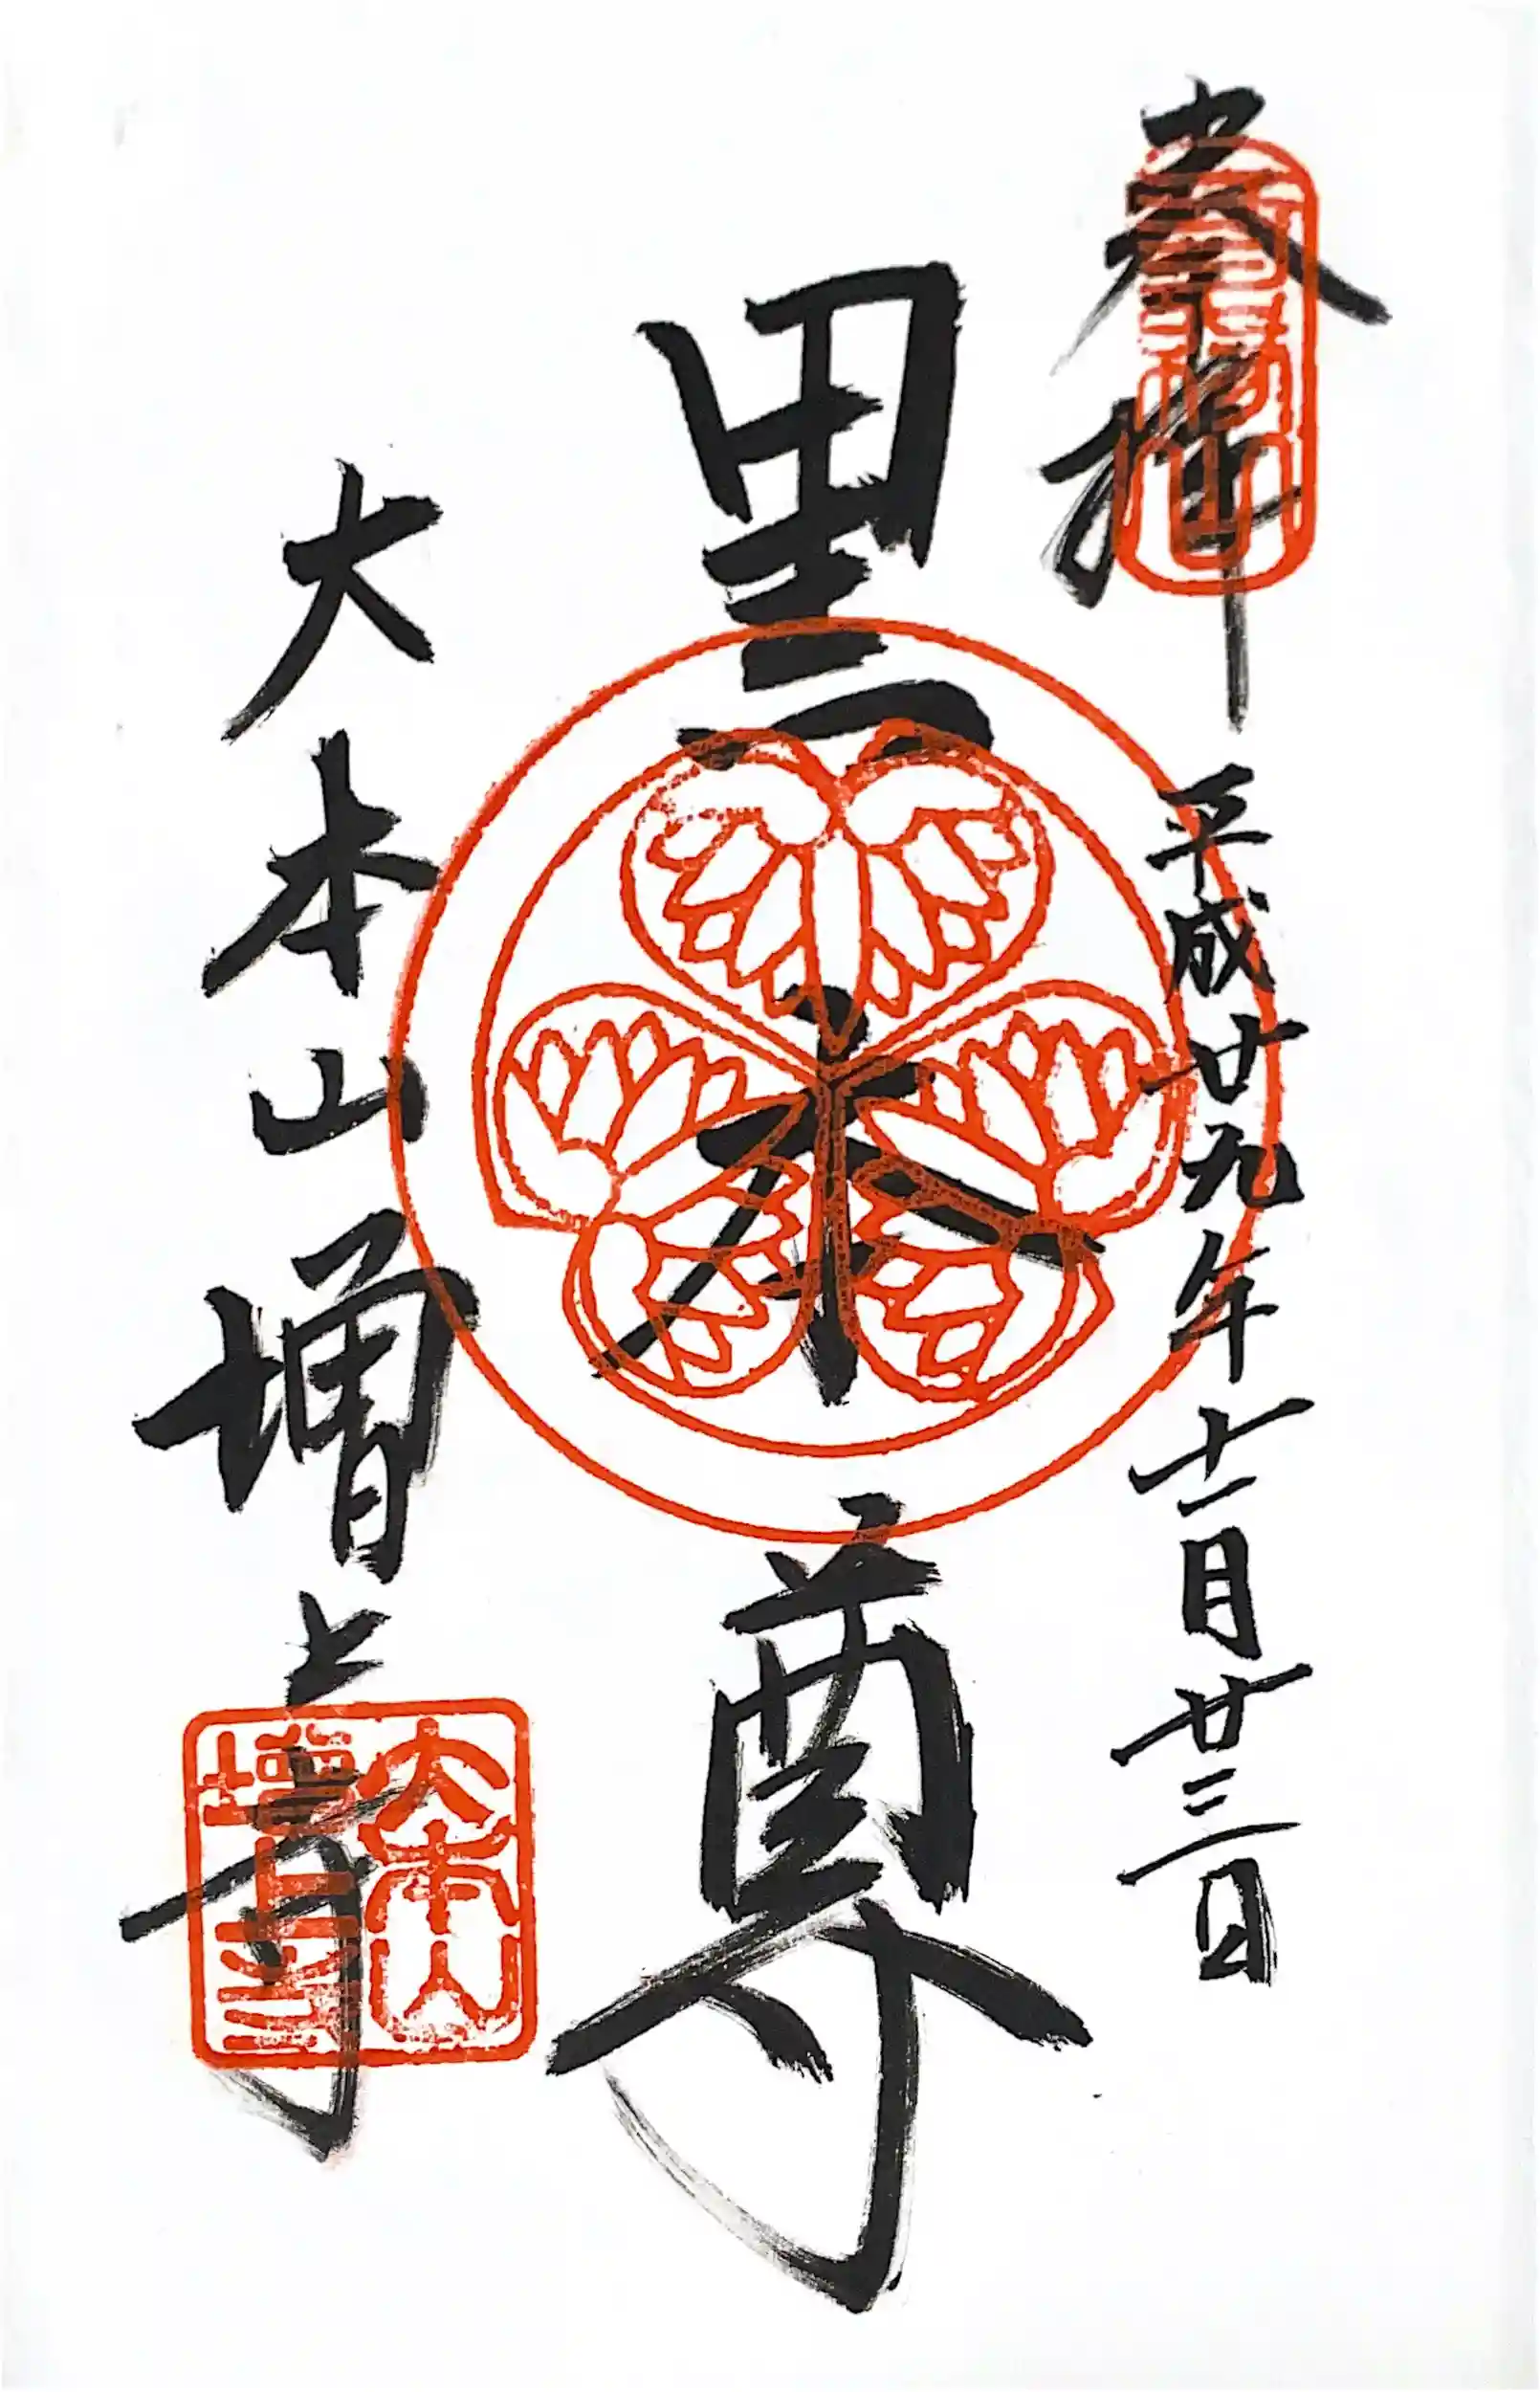 奉拝
平成廿九年十一月廿三日
黒本尊
大本山増上寺
大本山
増上寺